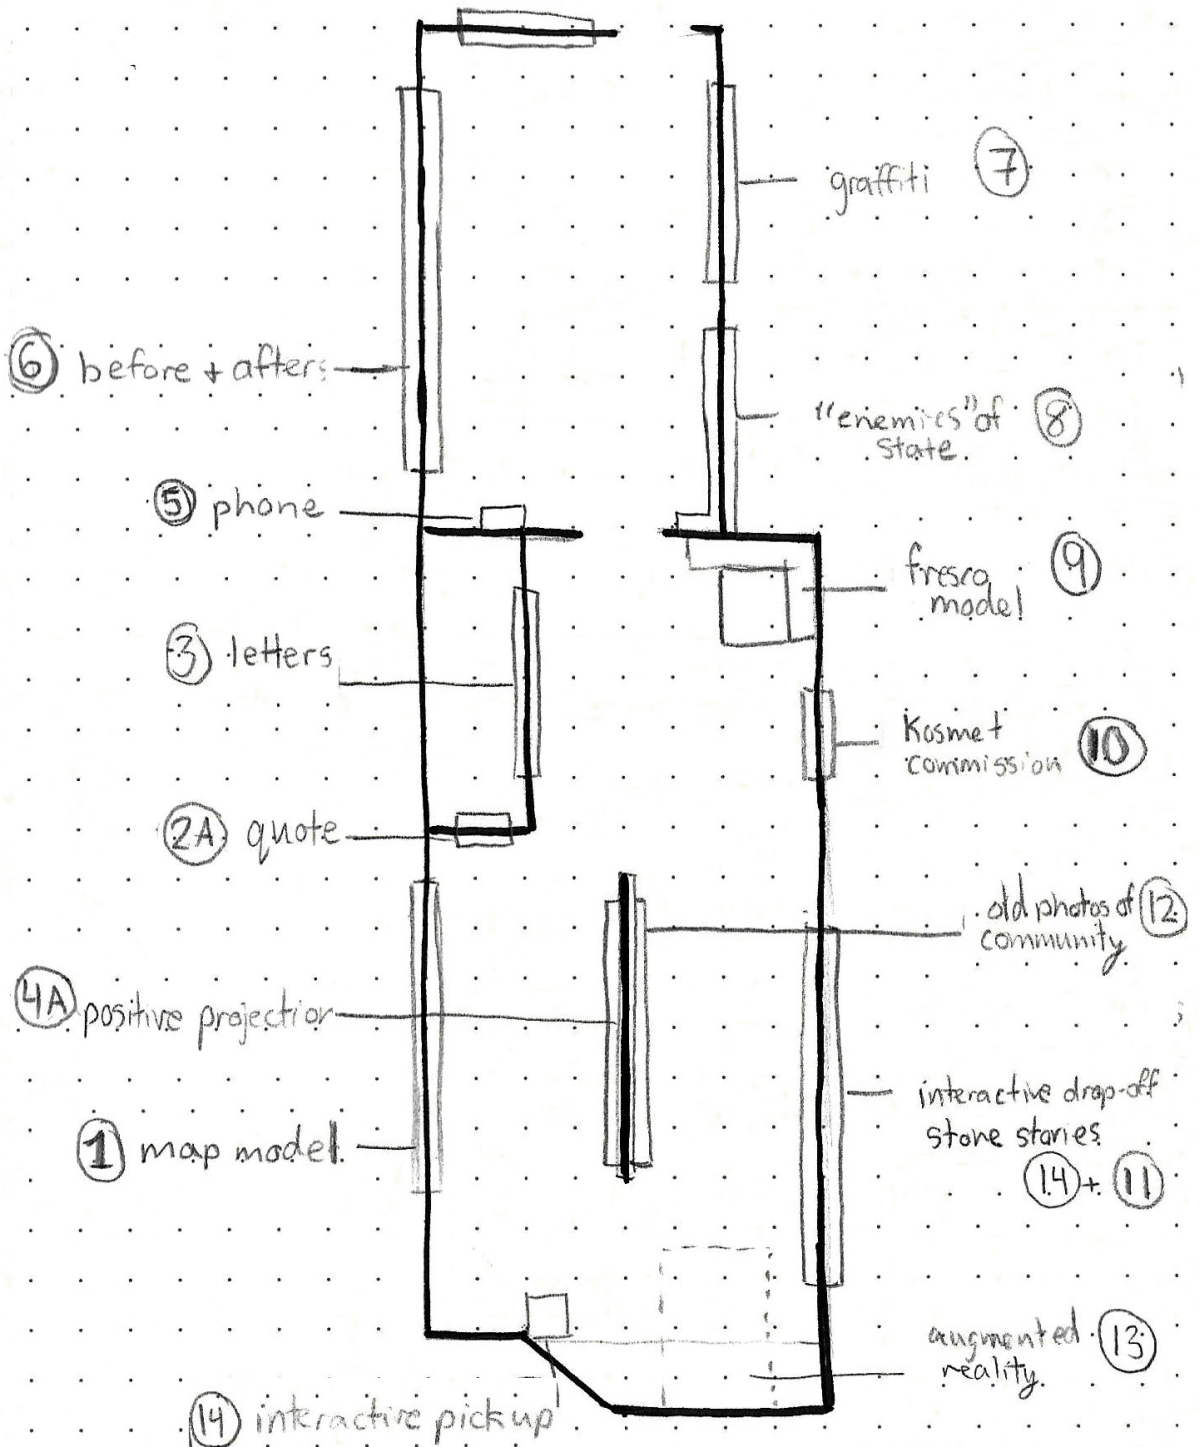 graffiti 7
6 before + afters
"enemies" of 8
state
5 phone
fresca 9
model
3 letters
Kosmet 10
commission
2A quote
old photos of 12
community
4A positive projection
interactive drop-off
stone stories
14 + 11
1 map model
augmented 13
reality
14 interactive pick up